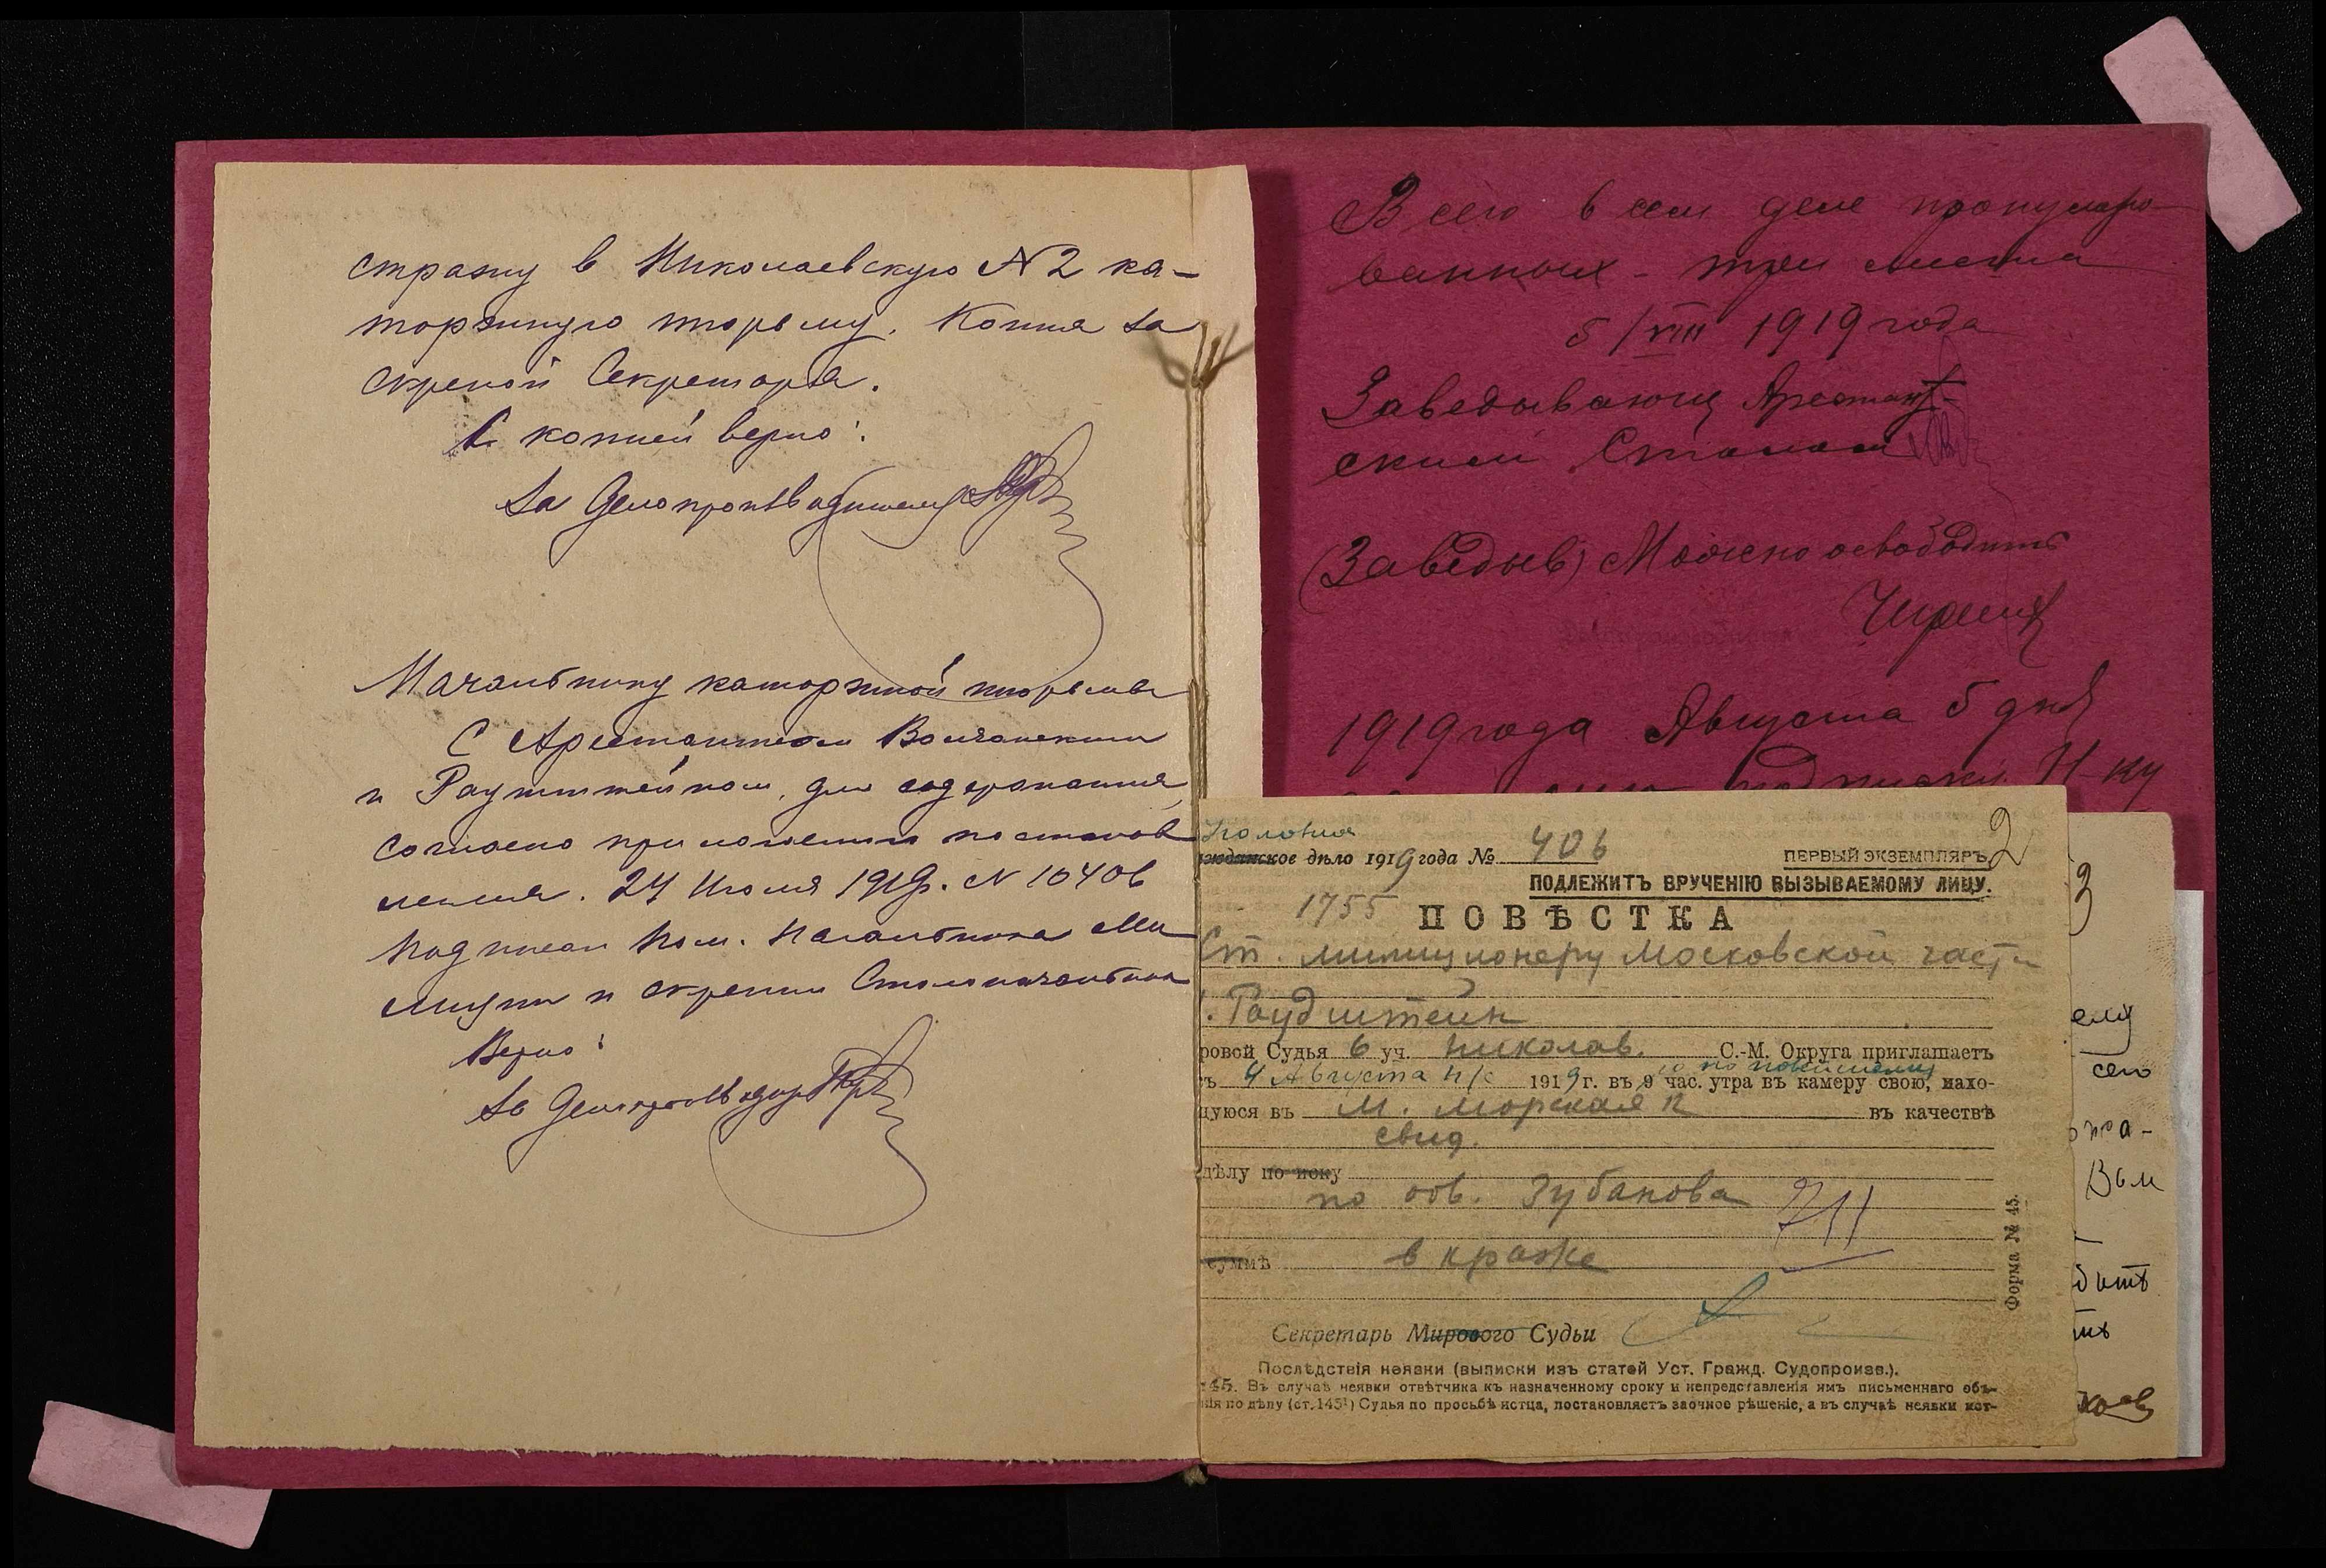 стражу в Николаевскую N2 ка-
торжную тюрьму. Копия за
скрепой Секретаря.
С копией верно:
За Делопроизводителя
Начальнику каторжной тюрьмы
С Арестантом Волчанским
и Раутштейном, для содержания,
согласно приложении постанов
ления. 24 Июля 1919г. N 10406
подписал Пом. Начальника Ми
лиции и скрепил Столоначальник
Верно:
За Делопроизвод
Всего в сем деле пронумеро-
ванных - три листа
5/VIII 1919 года
Заведывающ Арестант-
ским Столом
(Заведыв) Можно освободить
1919 года Августа 5 дня
подписки Н-ку
Уголовное
жданское дѣло 1919 года № 406
ПЕРВЫЙ ЭКЗЕМПЛЯРЪ 2
ПОДЛЕЖИТЪ ВРУЧЕНІЮ ВЫЗЫВАЕМОМУ ЛИЦУ.
1755
ПОВѢСТКА
Ст. милиционеру Московской части
Раудштейн
ровой Судья 6 уч. николав. С.-М. Округа приглашаетъ
ъ 4 Августа н/с 1919 г. въ 9 час. утра въ камеру свою, нахо-
10
дуюся въ М. морская 12 въ качествѣ
свид.
дѣлу по иску
по обв. Зубакова
711
суммѣ в краже
Секретарь Мирового Судьи
Послѣдствія неявки (выписки изъ статей Уст. Гражд. Судопроизв.).
145. Въ случаѣ неявки отвѣтчика къ назначенному сроку и непредставленія имъ письменнаго объ-
нія по дѣлу (ст. 145¹) Судья по просьбѣ истца, постановляетъ заочное рѣшеніе, а въ случаѣ неявки ист-
Форма № 45.
3
ему
сего
Вам